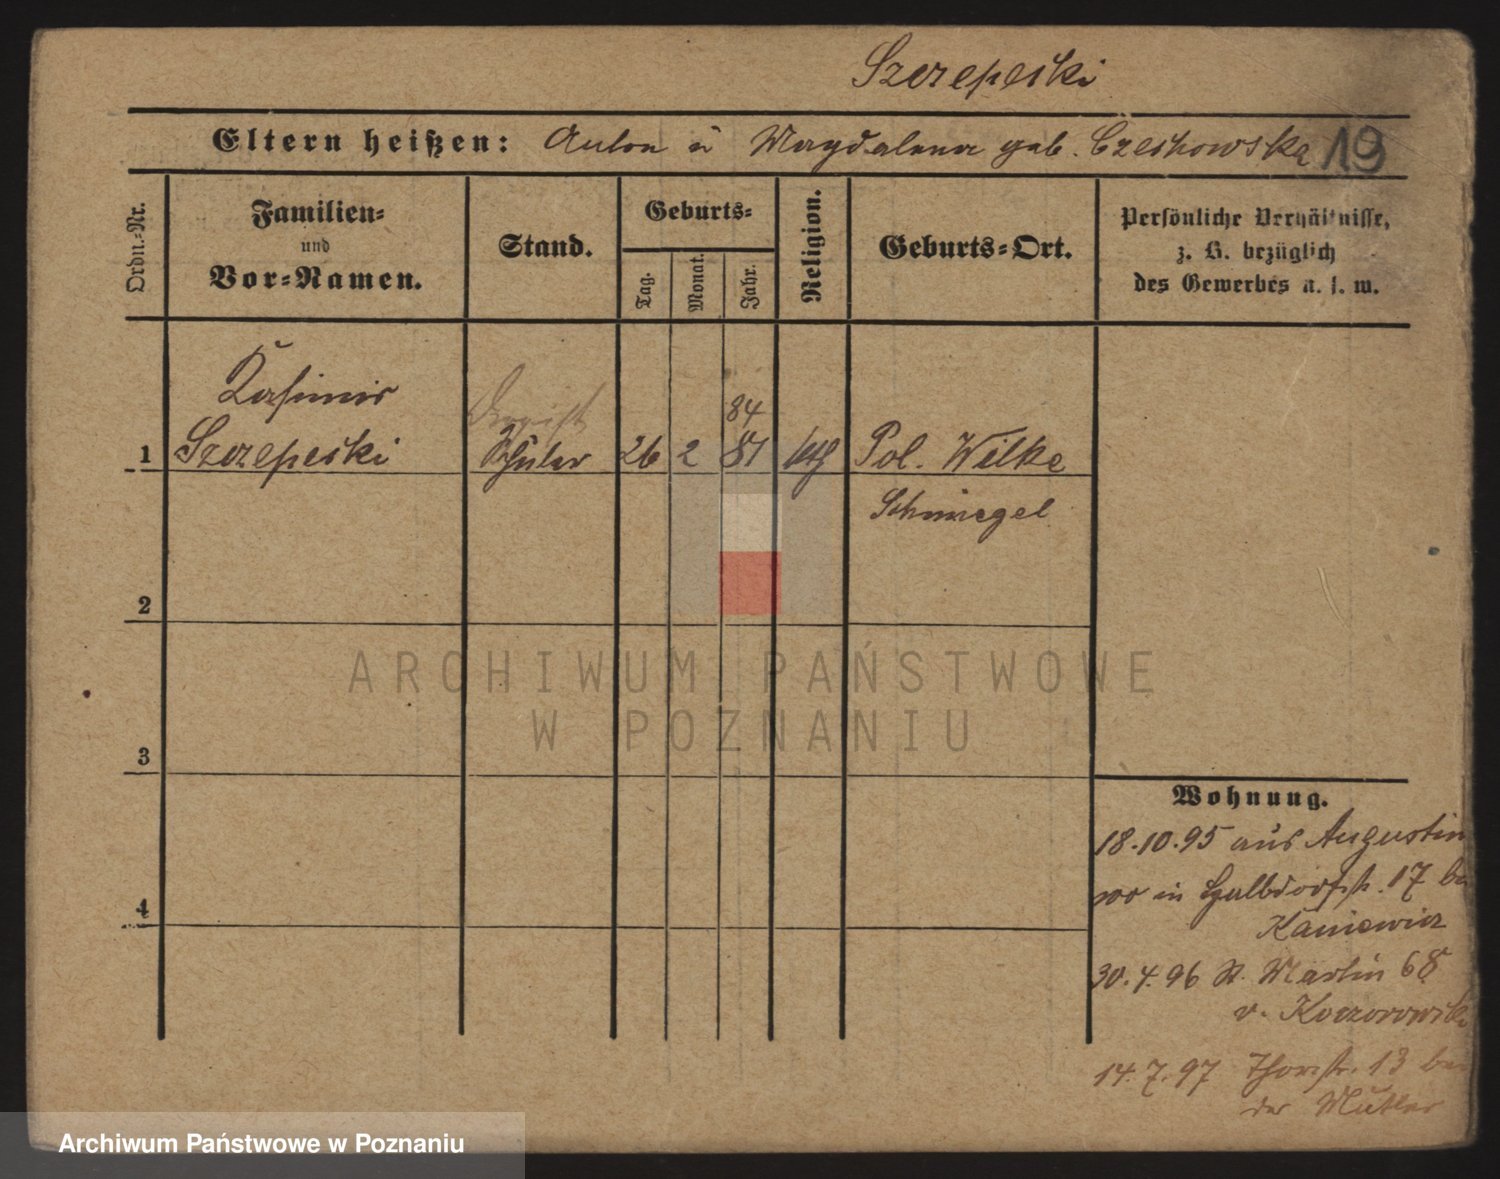 Szczepeski
Eltern heißen: Anton u Magdalena geb. Czeshowska 19
Ordn.-Nr.
Familien-
und
Vor-Namen.
Stand.
Geburts-
Tag.
Monat.
Jahr.
Religion.
Geburts-Ort.
Persönliche Verhältnisse,
z. B. bezüglich
des Gewerbes u. s. w.
Kasimir
84
1 Szczepeski Schüler 26 2 81 kth Pol. Wilke
Schmiegel
2
ARCHIWUM PAŃSTWOWE
W POZNANIU
3
4
Wohnung.
18.10.95 aus Augustin
wo in Halbdorfstr. 17 bei
Kaniewicz
30.4.96 St. Martin 68
v. Koczorowski
14.7.97 Thorstr. 13 bei
der Mutter
Archiwum Państwowe w Poznaniu